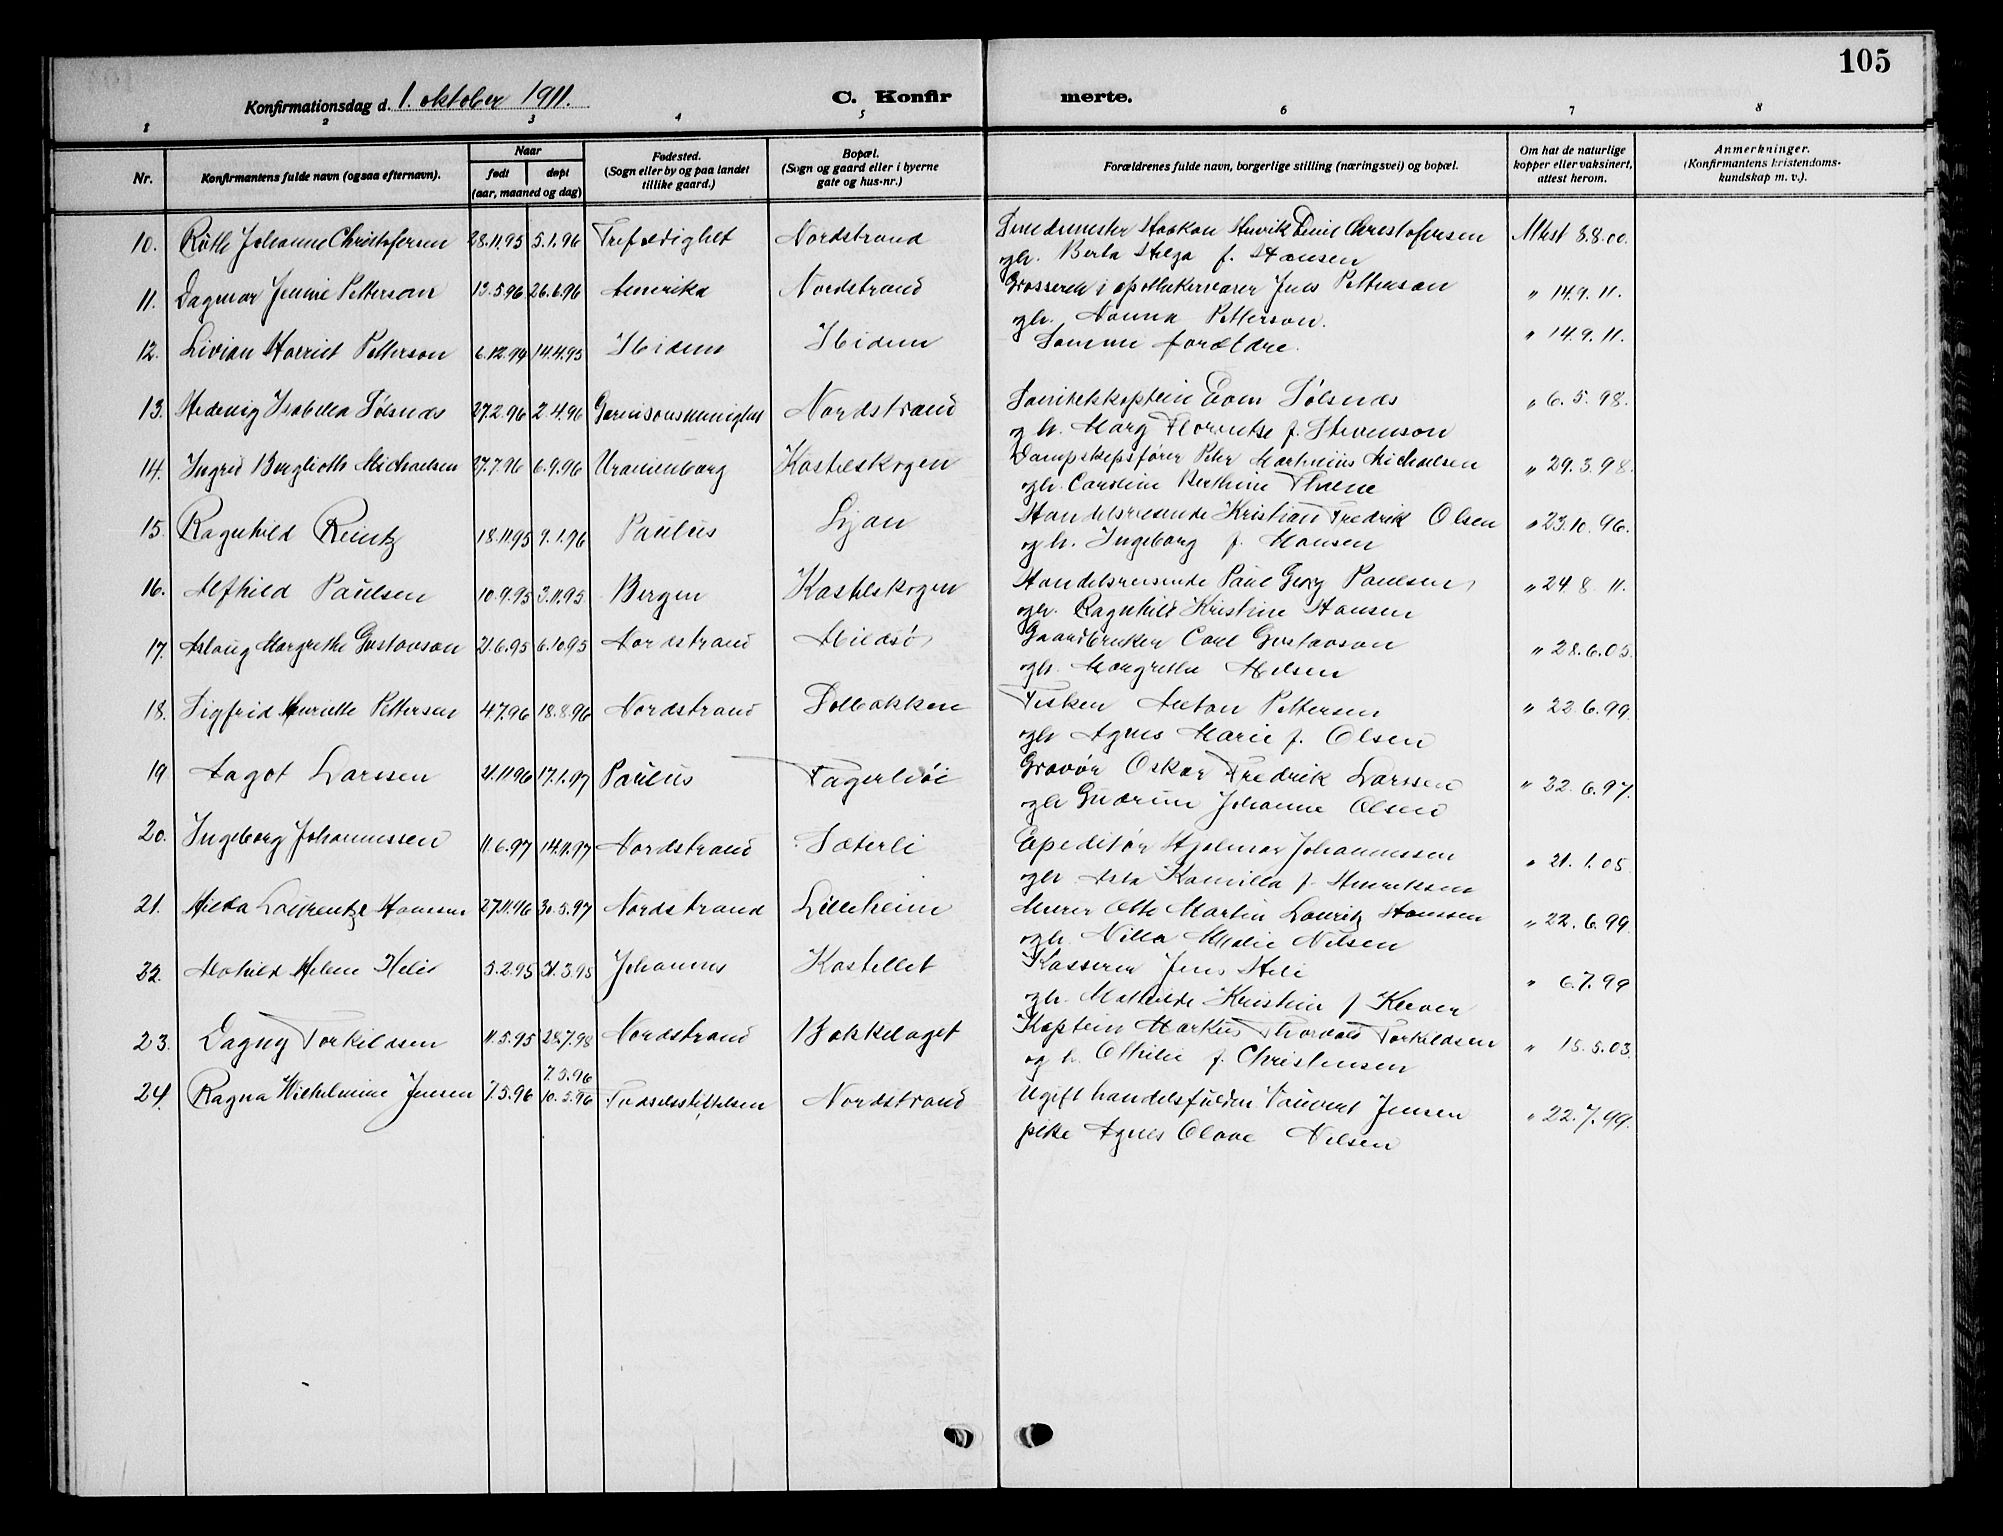 105
Konfirmationsdag d. 1. oktober 1911.
C. Konfir merte.
1 2 3 4 5 6 7 8
Nr. Konfirmantens fulde navn (ogsaa efternavn). Naar født døpt (aar, maaned og dag) Fødested. (Sogn eller by og paa landet tillike gaard.) Bopæl. (Sogn og gaard eller i byerne gate og hus-nr.) Forældrenes fulde navn, borgerlige stilling (næringsvei) og bopæl. Om hat de naturlige kopper eller vaksinert, attest herom. Anmerkninger. (Konfirmantens kristendoms-kundskap m. v.).
10. Ruth Johanne Christofersen 28.11.95 5.1.96 Trefoldighet Nordstrand Haakon Henrik Emil Christofersen Attest 8.8.00.
gh. Berta Helga f. Hansen
11. Dagmar Jennie Petterson 13.5.96 26.6.96 Amerika Nordstrand Grosserer i apothekervarer Jens Petterson " 14.9.11.
gh. Nanna Petterson.
12. Livian Harriet Petterson 6.12.94 14.4.95 Ibidem Ibidem Samme forældre. " 14.9.11.
13. Hedevig Isabella Sølsnæs 27.2.96 2.4.96 Garnisonsmenighet Nordstrand Sanitetskaptein Sølsnæs " 6.5.98.
og h. Mary f. Stevenson
14. Ingrid Bergliot Michaelsen 27.7.96 6.9.96 Uranienborg Kastelskogen Dampskipsfører Peter Martinius Michaelsen " 29.3.98.
gh. Caroline Berthine
15. Ragnhild Reintz 18.11.95 9.1.96 Paulus Ljan Handelsreisende Kristian Fredrik Olsen " 23.10.96.
og h. Ingeborg f. Hansen
16. Alfhild Paulsen 10.9.95 3.11.95 Bergen Kastelskogen Handelsreisende Paul Georg Paulsen, " 24.8.11.
gh. Ragnhild Kristine Hansen
17. Aslaug Margrethe Gustavson 21.6.95 6.10.95 Nordstrand Gaardbruker Carl Gustavson " 28.6.05.
gh. Margrethe Nilsen
18. Sigfrid Henriette Pettersen 4.7.96 18.8.96 Nordstrand Solbakken Fisker Anton Pettersen " 22.6.99.
gh. Agnes Marie f. Olsen
19. Aagot Larssen 21.11.96 17.1.97 Paulus Fagerhøi Gravør Oskar Fredrik Larssen " 22.6.97.
gh. Gudrun Johanne Olsen
20. Ingeborg Johannessen 11.6.97 14.11.97 Nordstrand Sæterli Expeditør Hjalmar Johannessen " 21.1.05.
gh. Asta Kamilla f. Henriksen
21. Hilda Laurentze Hansen 27.11.96 30.5.97 Nordstrand Lilleheim Murer Otto Martin Lauritz Hanssen " 22.6.99.
gh. Nilla Malie Nilsen
22. Mathild Helene Heli 5.2.95 31.3.95 Johannes Kastellet Kasserer Jens Heli " 6.7.99
gh. Mathilde Kristine f.
23. Dagny Torkildsen 11.5.95 28.7.98 Nordstrand Bækkelaget Kaptein Markus Thorvald Torkildsen " 15.5.03.
og h. Othilie f. Christensen
24. Ragna Wilhelmine Jensen 7.5.96 7.5.96 10.5.96 Fødselsstiftelsen Nordstrand Ugift handelsfuldm. Jensen " 22.7.99.
pike Agnes Olave Nilsen